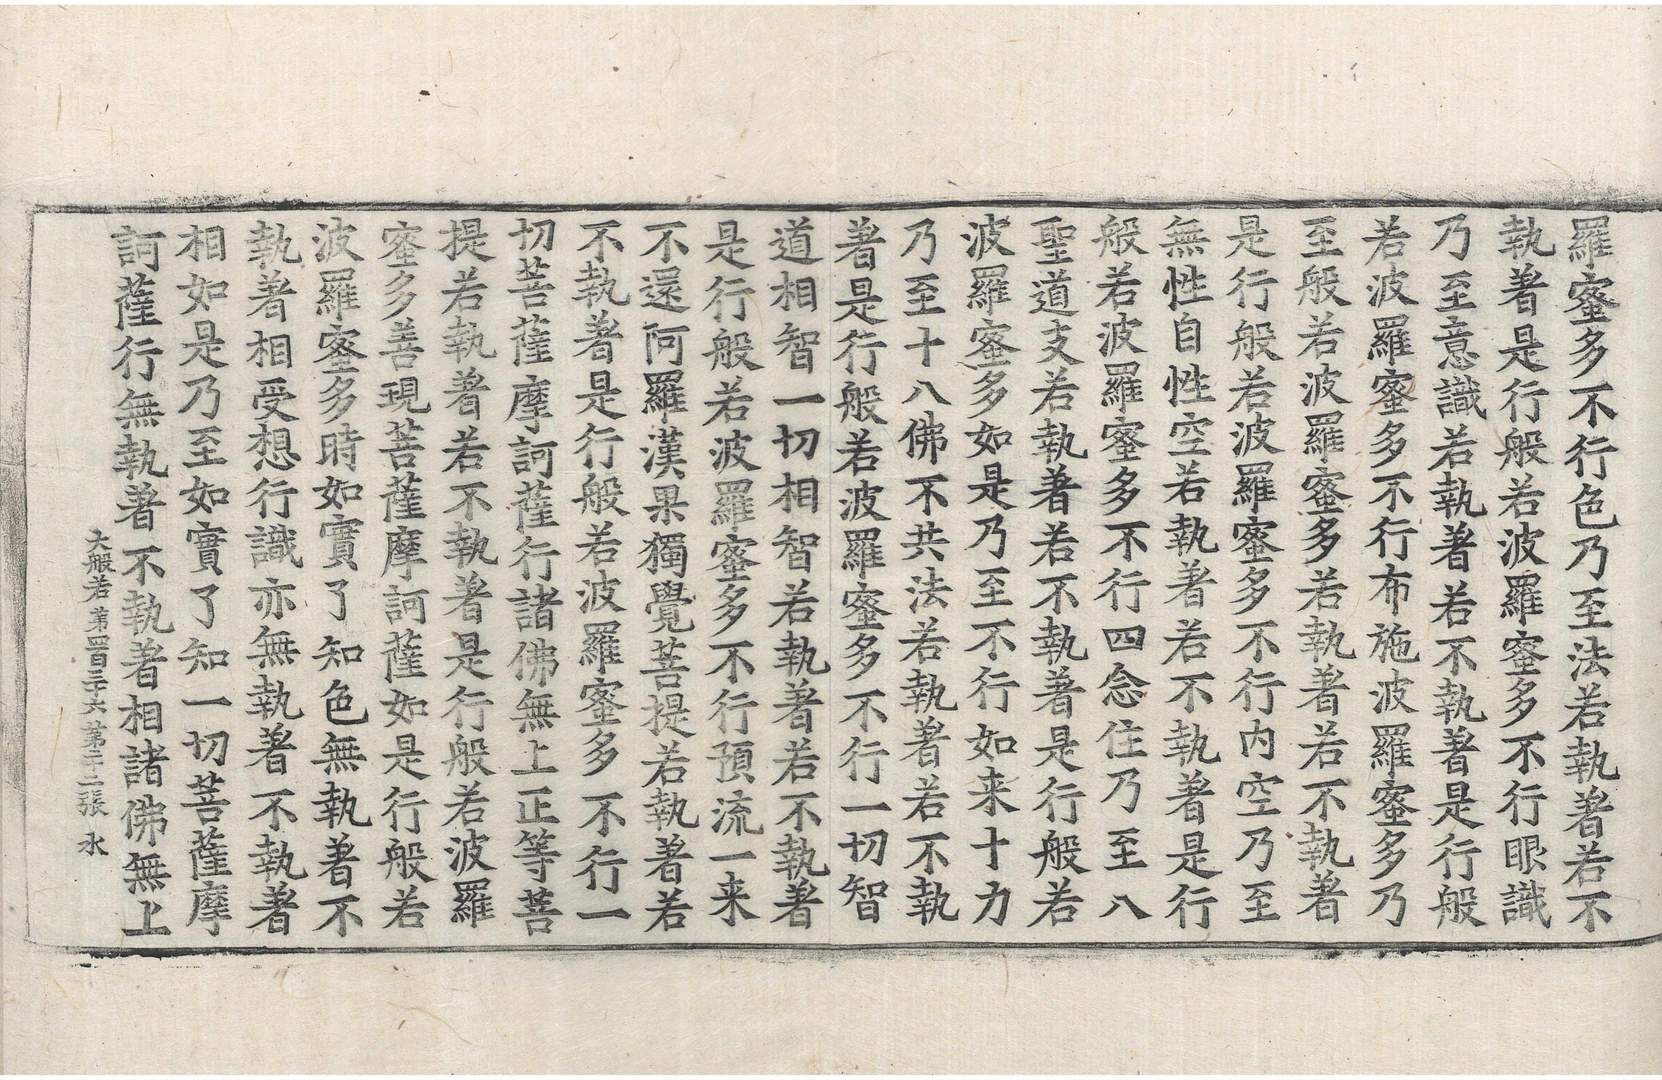 羅蜜多不行色乃至法若執著若不
執著是行般若波羅蜜多不行眼識
乃至意識若執著若不執著是行般
若波羅蜜多不行布施波羅蜜多乃
至般若波羅蜜多若執著若不執著
是行般若波羅蜜多不行内空乃至
無性自性空若執著若不執著是行
般若波羅蜜多不行四念住乃至八
聖道支若執著若不執著是行般若
波羅蜜多如是乃至不行如来十力
乃至十八佛不共法若執著若不執
著是行般若波羅蜜多不行一切智
道相智一切相智若執著若不執著
是行般若波羅蜜多不行預流一来
不還阿羅漢果獨覺菩提若執著若
不執著是行般若波羅蜜多不行一
切菩薩摩訶薩行諸佛無上正等菩
提若執著若不執著是行般若波羅
蜜多善現菩薩摩訶薩如是行般若
波羅蜜多時如實了知色無執著不
執著相受想行識亦無執著不執著
相如是乃至如實了知一切菩薩摩
訶薩行無執著不執著相諸佛無上
大般若第四百三十六 第二十二張 水